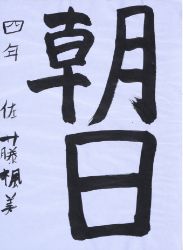 朝日
四年 佐藤楓美